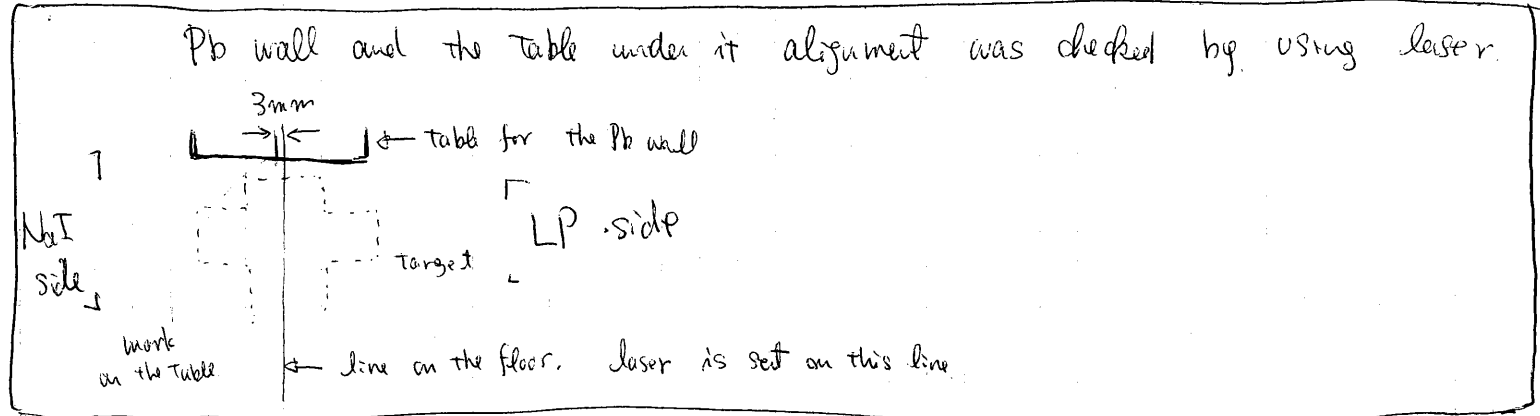 Pb wall and the Table under it alignment was checked by using laser
3mm
← table for the Pb wall
NaI
side
LP side
Target
mark
on the Table
← line on the floor. laser is set on this line